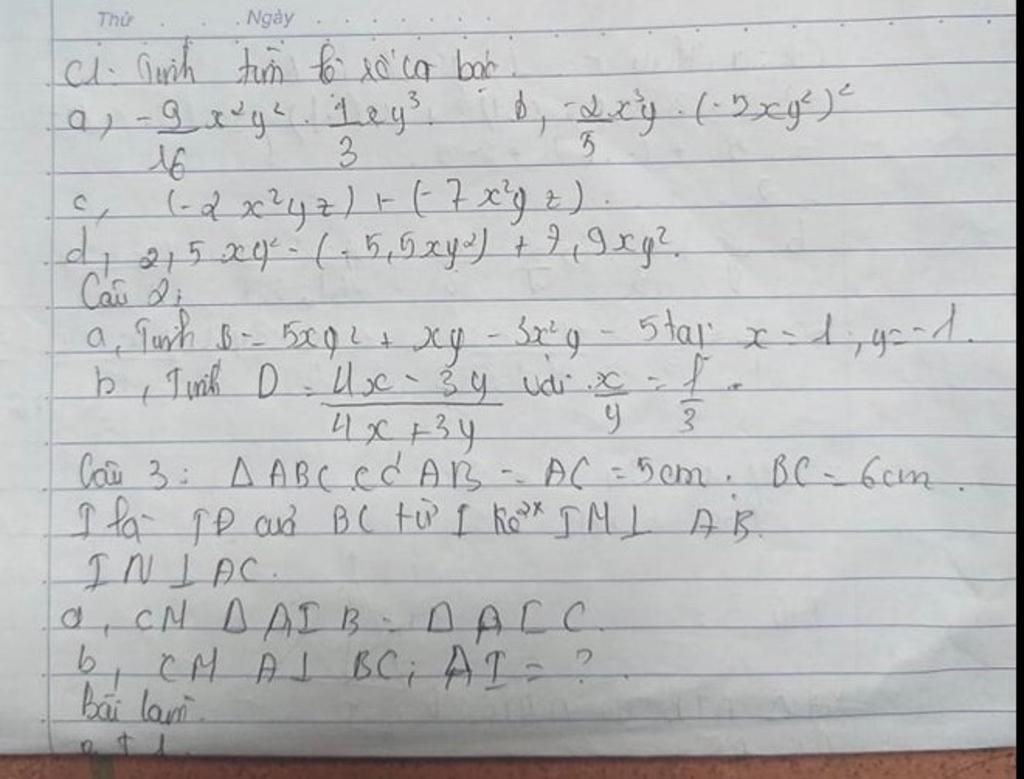 Thứ Ngày
C1. Tính tìm hệ số và bậc.
a, -9/16 x²y² . 1/3 xy³ b, -2/5 x³y . (-5xy²)²
c, (-2x²yz) + (-7x²yz).
d, 2,5xy² - (-5,5xy²) + 7,9xy².
Câu 2:
a, Tính B = 5xy² + xy - 3x²y - 5 tại x = 1 ; y = -1.
b, Tính D = 4x - 3y / 4x + 3y với x/y = 1/3.
Câu 3: ΔABC có AB = AC = 5cm. BC = 6cm.
I là TĐ của BC từ I kẻ IM⊥ AB.
IN⊥AC.
a, CM ΔAIB = ΔAIC.
b, CM AI BC; AI = ?
Bài làm